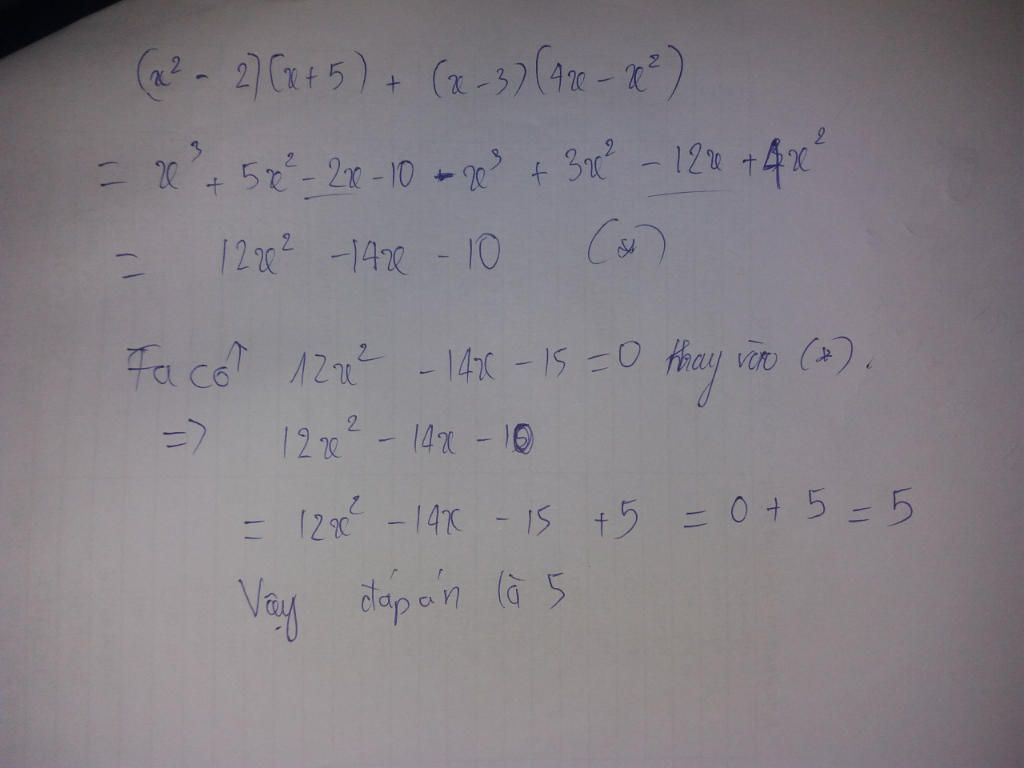 (x² - 2)(x+5) + (x-3)(4x - x²)
= x³ + 5x² - 2x - 10 - x³ + 3x² - 12x + 4x²
= 12x² - 14x - 10 (*)
Ta có 12x² - 14x - 15 = 0 thay vào (*).
=> 12x² - 14x - 10
= 12x² - 14x - 15 + 5 = 0 + 5 = 5
Vậy đáp án là 5